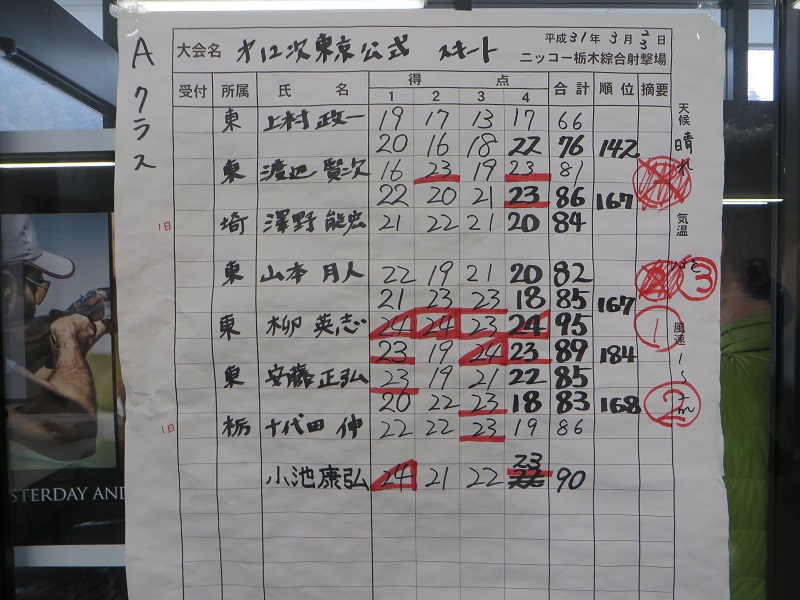 Aクラス
大会名 才12次東京公式 スキート 平成31年3月23日
ニッコー栃木綜合射撃場
受付 所属 氏名 得点 合計 順位 摘要
1 2 3 4
東 上村政一 19 17 13 17 66
20 16 18 22 76 142
東 渡辺賢次 16 23 19 23 81
22 20 21 23 86 167
1日 埼 澤野能宏 21 22 21 20 84
東 山本月人 22 19 21 20 82 3
21 23 23 18 85 167
東 柳英志 24 24 23 24 95 1
23 19 24 23 89 184
東 安藤正弘 23 19 21 22 85
20 22 23 18 83 168 2
1日 栃 十代田伸 22 22 23 19 86
小池康弘 24 21 22 23 90
天候 晴れ
気温
風速 1~2m
STERDAY AND